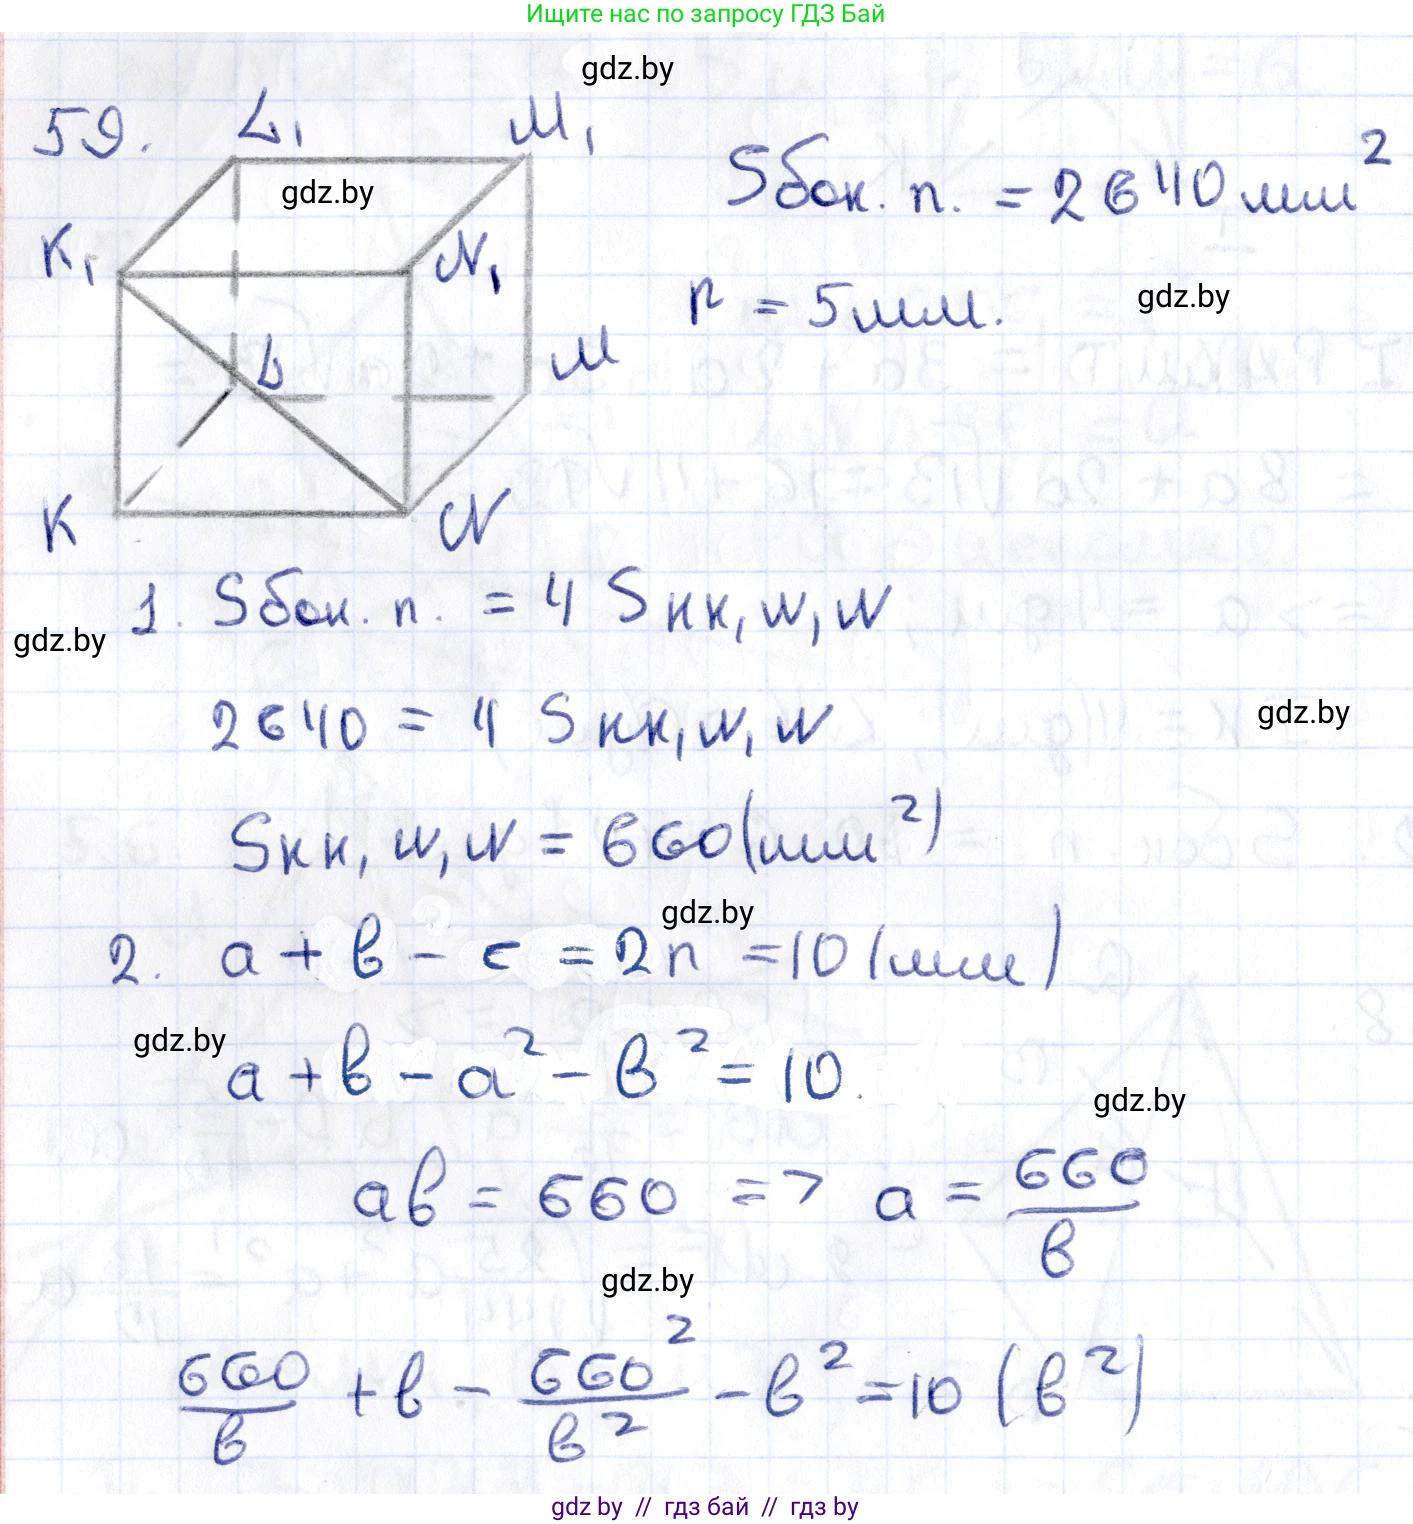 Ищите нас по запросу ГДЗ Бай
gdz.by
59.
L₁ M₁
gdz.by
K₁ N₁
L M
K N
Sбок. п. = 2640 мм²
r = 5 мм.
gdz.by
1. Sбок. п. = 4 Sкк₁N₁N
gdz.by
2640 = 4 Sкк₁N₁N
gdz.by
Sкк₁N₁N = 660 (мм²)
gdz.by
2. a + b - c = 2r = 10 (мм)
gdz.by
a + b - a² - b² = 10.
gdz.by
ab = 660 => a = 660/b
gdz.by
660/b + b - 660²/b² - b² = 10 (b²)
gdz by // гдз бай // гдз by